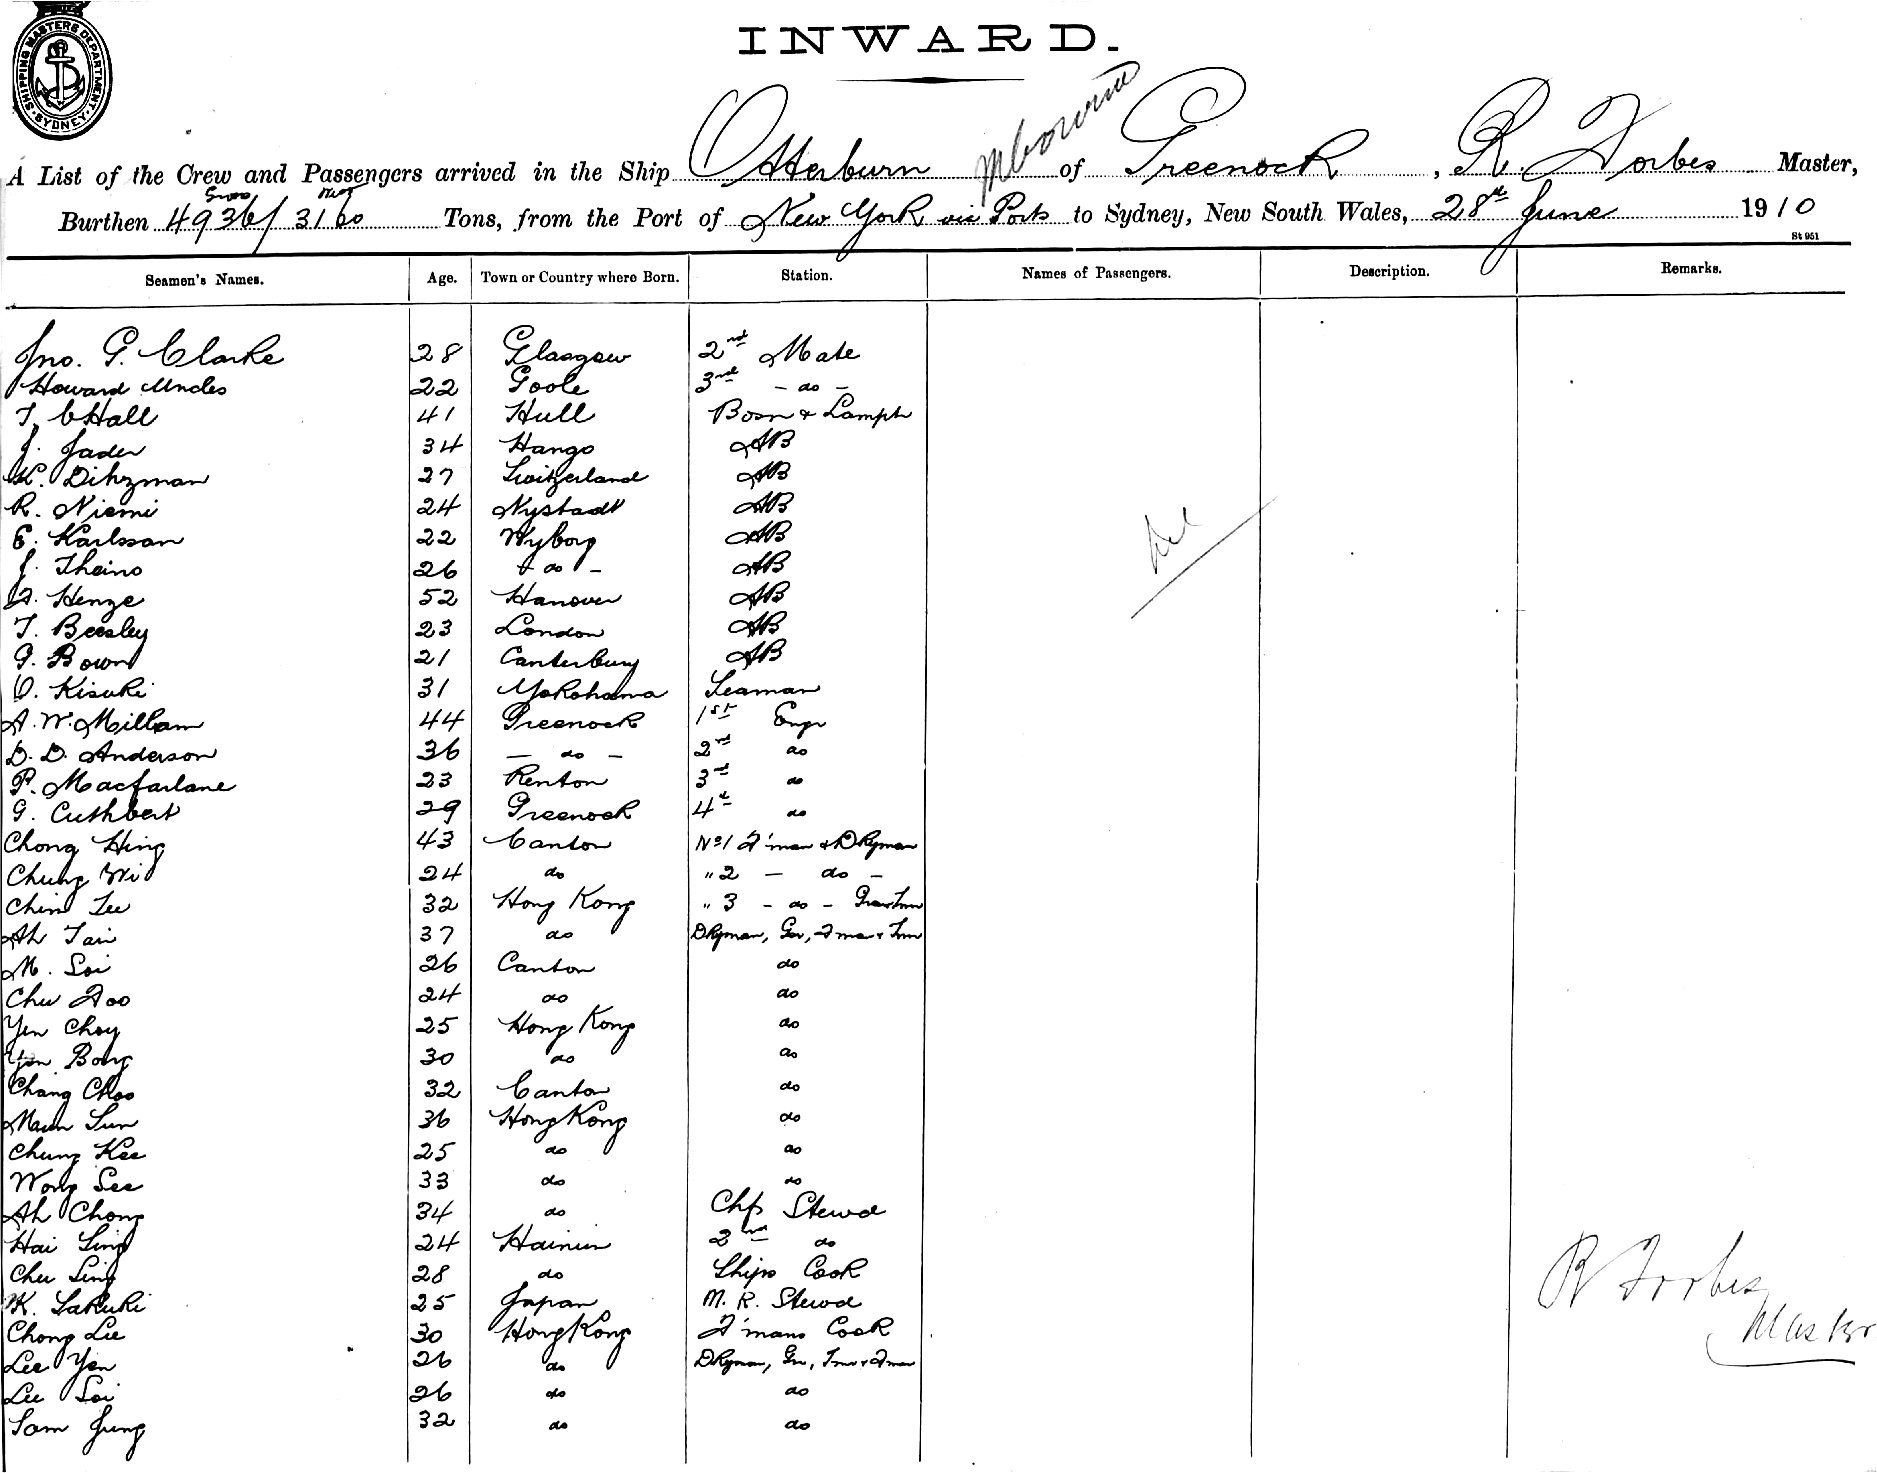 SHIPPING MASTERS DEPARTMENT
SYDNEY
INWARD.
A List of the Crew and Passengers arrived in the Ship Otterburn of Greenock, R. Forbes Master,
Gross
Burthen 4936/3160 Tons, from the Port of New York via Ports to Sydney, New South Wales, 28th June 1910
St 951
Seamen's Names. Age. Town or Country where Born. Station. Names of Passengers. Description. Remarks.
Jno. G. Clarke 28 Glasgow 2nd Mate
Howard Uncles 22 Goole 3rd - do -
T. C Hall 41 Hull Bosn & Lamptr
J. Jader 34 Hango AB
K. Dihzman 27 Switzerland AB
R. Niemi 24 Nystadt AB
E. Karlsson 22 Wyborg AB
J. Theino 26 - do - AB
A. Henze 52 Hanover AB
T. Beesley 23 London AB
G. Bown 21 Canterbury AB
O. Kisuki 31 Yokohama Seaman
A. W. Millam 44 Greenock 1st Engr
D. D. Anderson 36 - do - 2nd do
P. Macfarlane 23 Renton 3rd do
G. Cuthbert 29 Greenock 4th do
Chong Hing 43 Canton No 1 F'man & DKyman
Chung Wi 24 do " 2 - do -
Chin Lee 32 Hong Kong " 3 - do -
Ah Tai 37 do DKyman, Gr, Fman & Tmr
M. Soi 26 Canton do
Chu Foo 24 do do
Yen Choy 25 Hong Kong do
Yon Bong 30 do do
Chang Choo 32 Canton do
Mun Sun 36 Hong Kong do
Chung Kee 25 do do
Wong See 33 do do
Ah Chong 34 do Chf Stewd
Hai Sing 24 Hainin 2nd do
Chu Sing 28 do Ships Cook
K. Sakuki 25 Japan M. R. Stewd
Chong Lee 30 Hong Kong F'mans Cook
Lee Yen 26 do DKyman, Gr, Tmr & Fman
Lee Soi 26 do do
Sam Jung 32 do do
Nil
R Forbes
Master